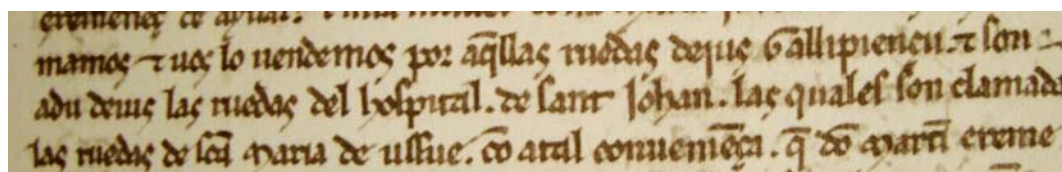 eremeneç de aynar. 
mamos ⁊ uos lo uendemos por aq̃llas ruedas deius Gallipiençu. ⁊ son
adu deius las ruedas del hospital. de sant Johan. las quales son clamada
las ruedas de sc̃a Maria de ussue. cõ atal conueniẽça. q̃ dõ Martĩ ereme